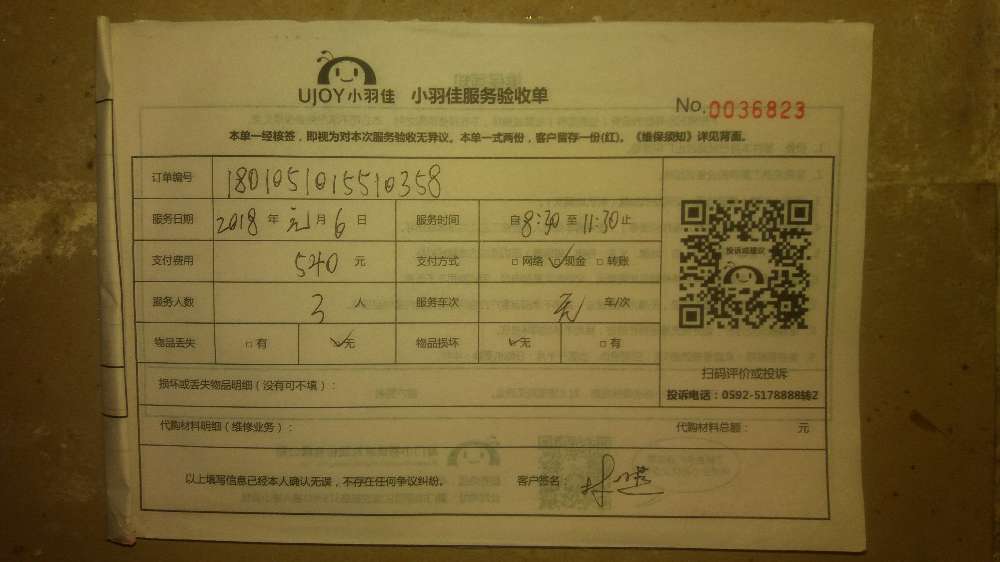 UJOY小羽佳 小羽佳服务验收单 No.0036823
本单一经核签，即视为对本次服务验收无异议。本单一式两份，客户留存一份(红)。《维保须知》详见背面。
订单编号 1801051015510358
服务日期 2018 年 元 月 6 日 服务时间 自 8:30 至 11:30 止
支付费用 540 元 支付方式 □ 网络 ☑ 现金 □ 转账
服务人数 3 人 服务车次 无 车/次
物品丢失 □ 有 ☑ 无 物品损坏 ☑ 无 □ 有
投诉或建议
扫码评价或投诉
投诉电话：0592-5178888转2
损坏或丢失物品明细（没有可不填）：
代购材料明细（维修业务）： 代购材料总额： 元
以上填写信息已经本人确认无误，不存在任何争议纠纷。 客户签名：